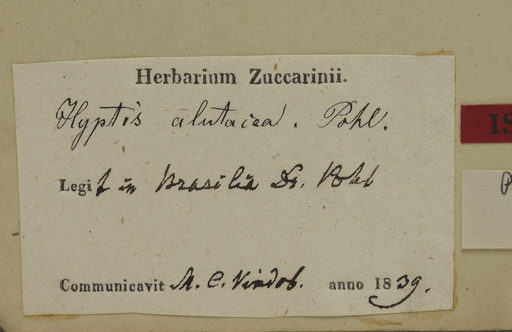 Herbarium Zuccarinii.
Hyptis alutacea. Pohl.
Legit in Brasiliâ Dr. Pohl
Communicavit M. C. Vindob. anno 1839.